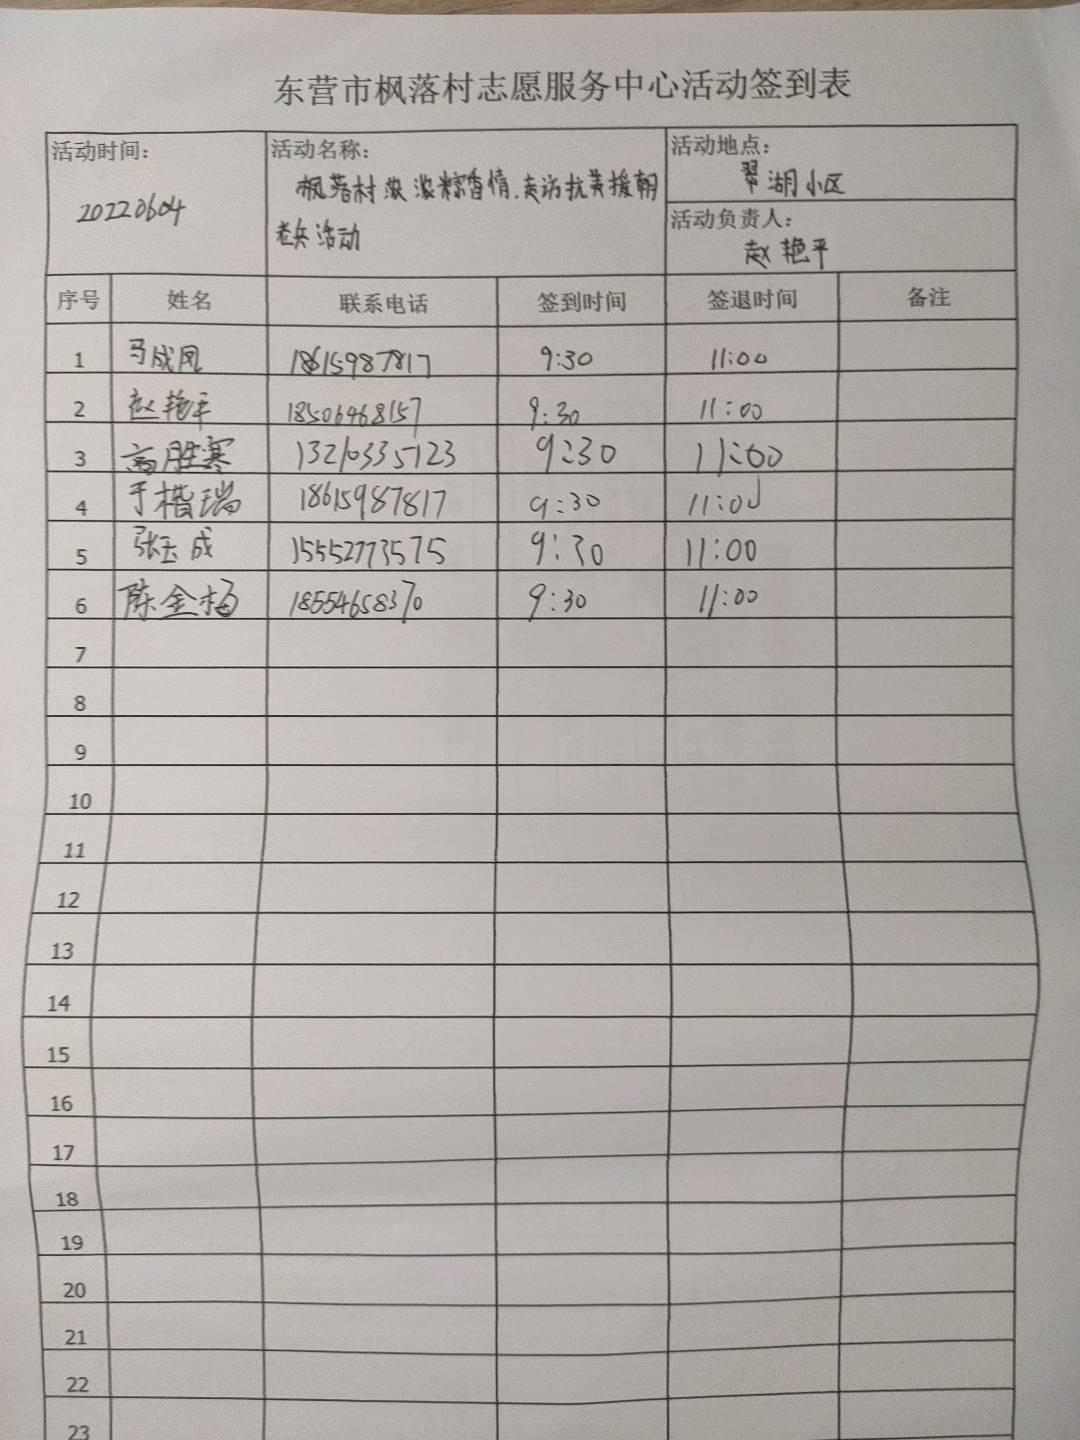 东营市枫落村志愿服务中心活动签到表
活动时间：
20220604
活动名称：
枫落村浓浓粽香情.走访抗美援朝
老兵活动
活动地点：
翠湖小区
活动负责人：
赵艳平
序号 姓名 联系电话 签到时间 签退时间 备注
1 马成凤 18615987817 9:30 11:00
2 赵艳平 18506468157 9:30 11:00
3 高胜寒 13210335123 9:30 11:00
4 于楷瑞 18615987817 9:30 11:00
5 张玉成 15552773575 9:30 11:00
6 陈金梅 18554658370 9:30 11:00
7
8
9
10
11
12
13
14
15
16
17
18
19
20
21
22
23